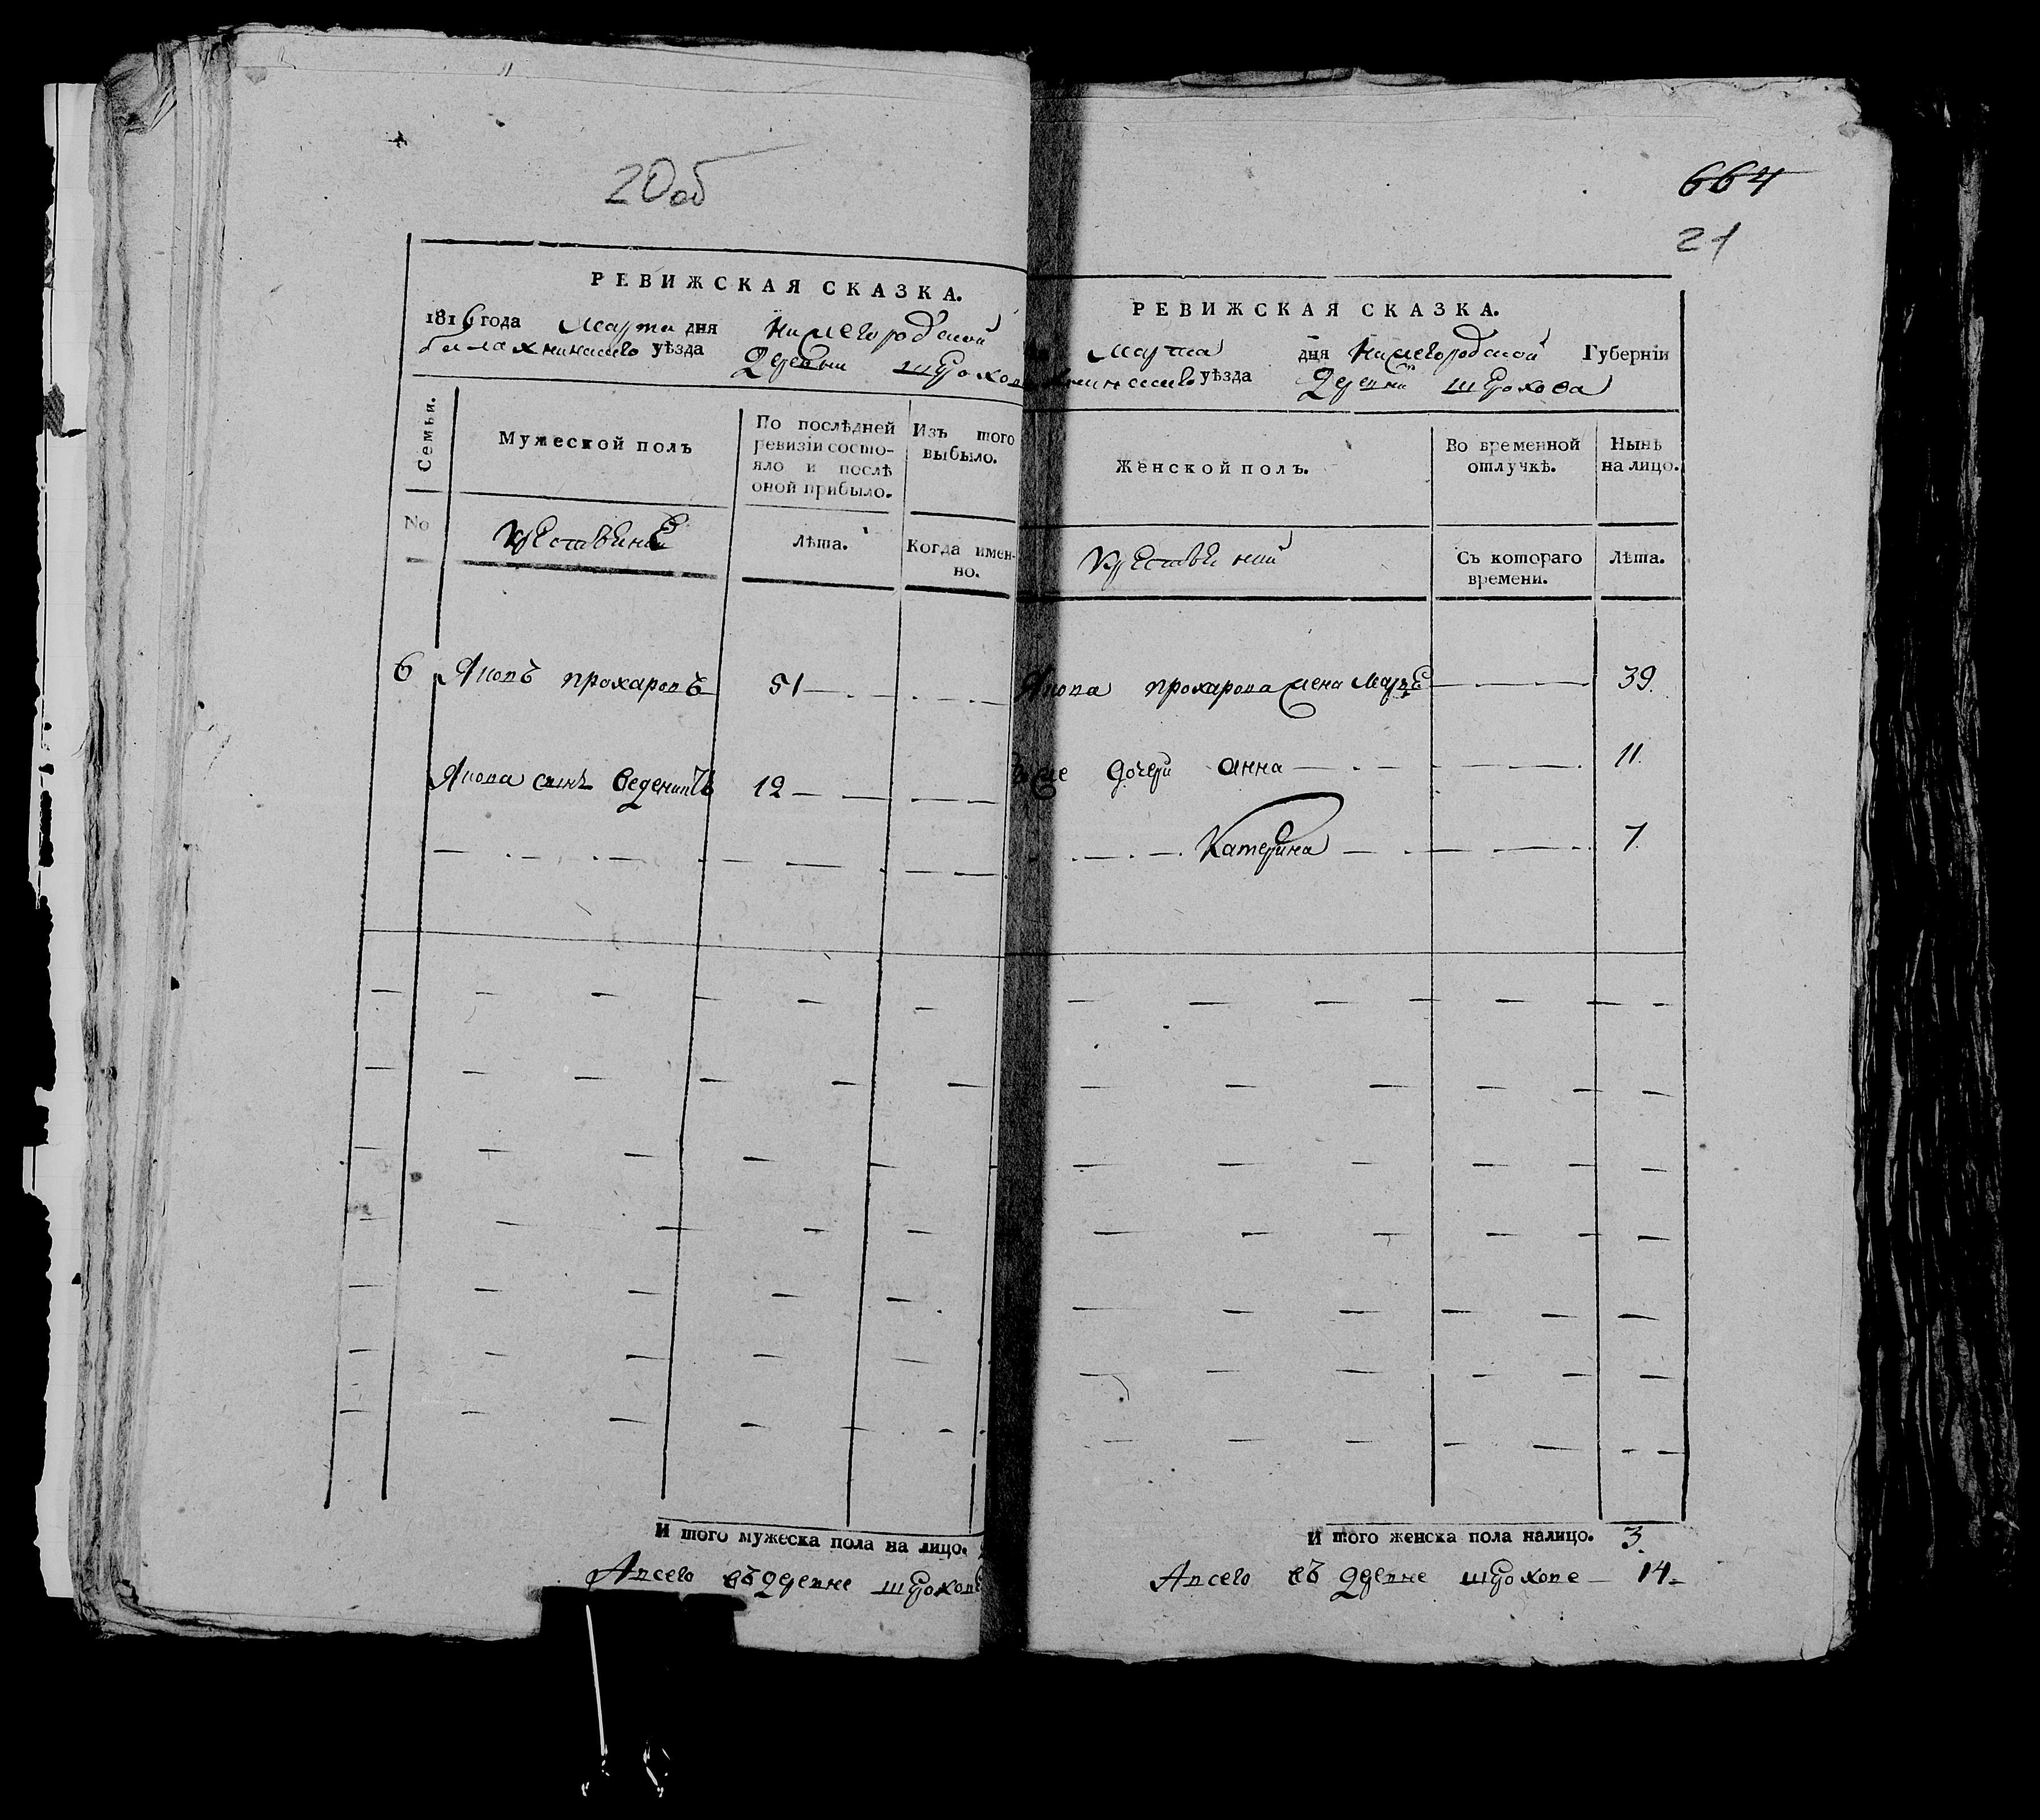 20об
РЕВИЖСКАЯ СКАЗКА.
1816 года Марта дня Нижегородской
балахнинскаго уѣзда Деревни
Семьи.
Мужеской полъ
По послѣдней ревизіи состояло и послѣ оной прибыло.
Изъ того выбыло.
No
Лѣта.
Когда именно.
6 Яковъ прохаровъ 51
Якова сынъ веденихтъ 12
И того мужеска пола на лицо.
Авсего въ деревне
664
21
РЕВИЖСКАЯ СКАЗКА.
Марта дня Нижегородской Губерніи
уѣзда Деревни
Женской полъ.
Во временной отлучкѣ.
Нынѣ на лицо.
Съ котораго времени.
Лѣта.
Якова прохарова жена 39.
дочери анна 11.
Катерина 7.
И того женска пола налицо. 3.
Авсего въ деревне 14